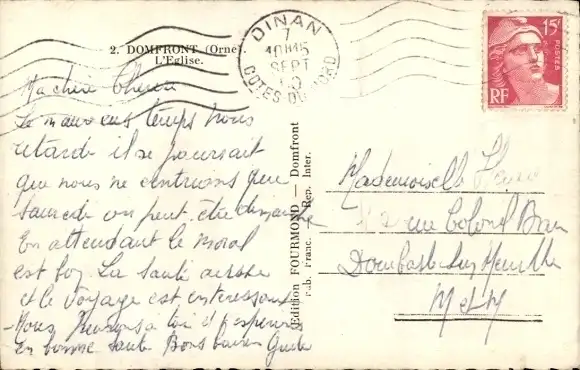 2. DOMFRONT (Orne).
L'Eglise.
DINAN
7
SEPT
COTES DU NORD
15F
POSTES
RF
Ma chère
Le mauvais temps nous
retarde il se pourrait
que nous ne rentrions que
samedi ou peut être dimanche
En attendant le moral
est bon La santé aussi
et le voyage est intéressant
Nous pensons à toi et espérons
en bonne santé Bons baisers
Edition FOURMOND — Domfront
Fab. Franc. Rep. Inter.
Mademoiselle
rue Colonel
Dombasle sur Meurthe
M & M